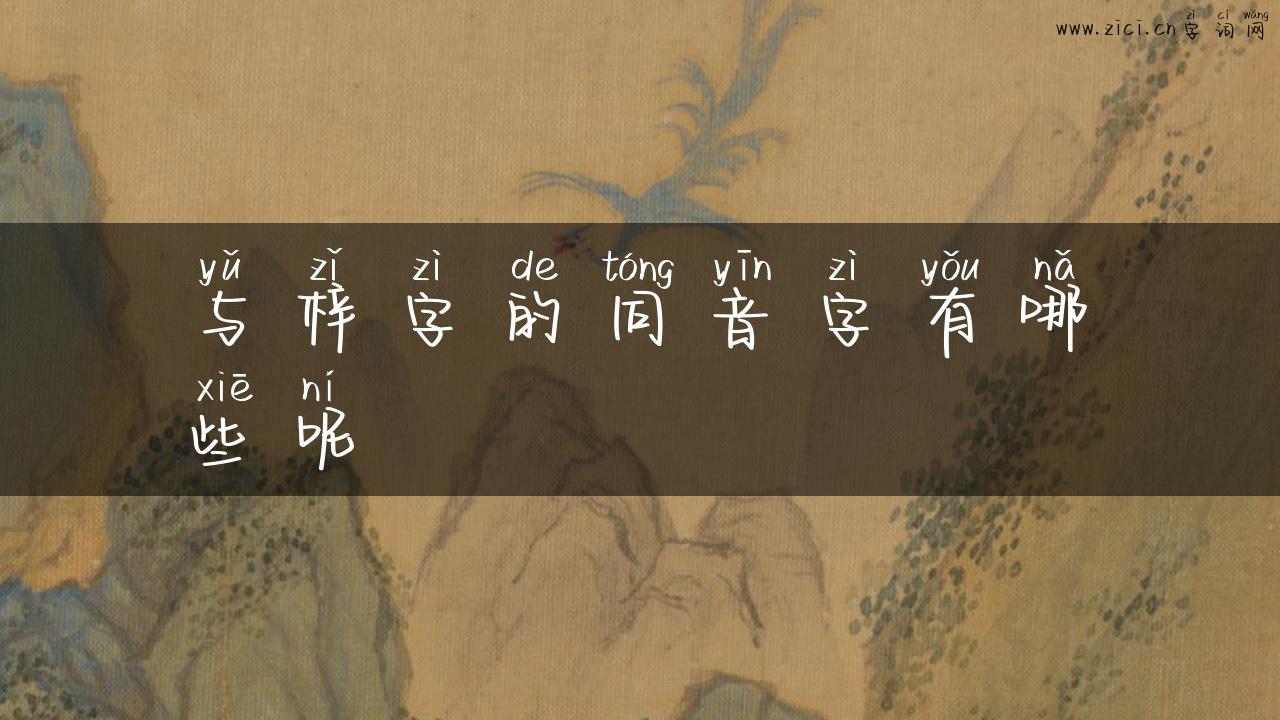 zì cí wǎng
www.zici.cn字词网
yǔ zǐ zì de tóng yīn zì yǒu nǎ
与梓字的同音字有哪
xiē ní
些呢